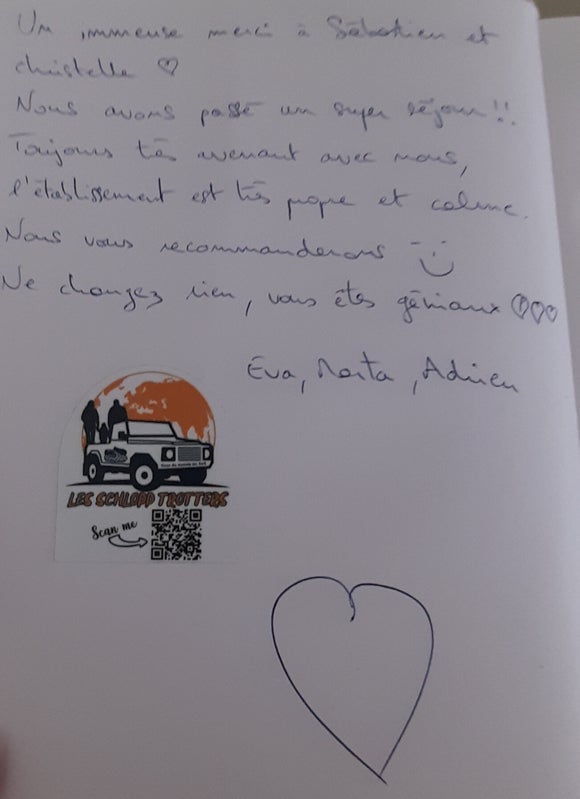 Un immense merci à Sébastien et
christelle ♡
Nous avons passé un super séjour!!
Toujours très avenant avec nous,
l'établissement est très propre et calme.
Nous vous recommanderons
Ne changez rien, vous êtes géniaux ♡♡♡
Eva, Marta, Adrien
LES SCHLOPP TROTTERS
Scan me